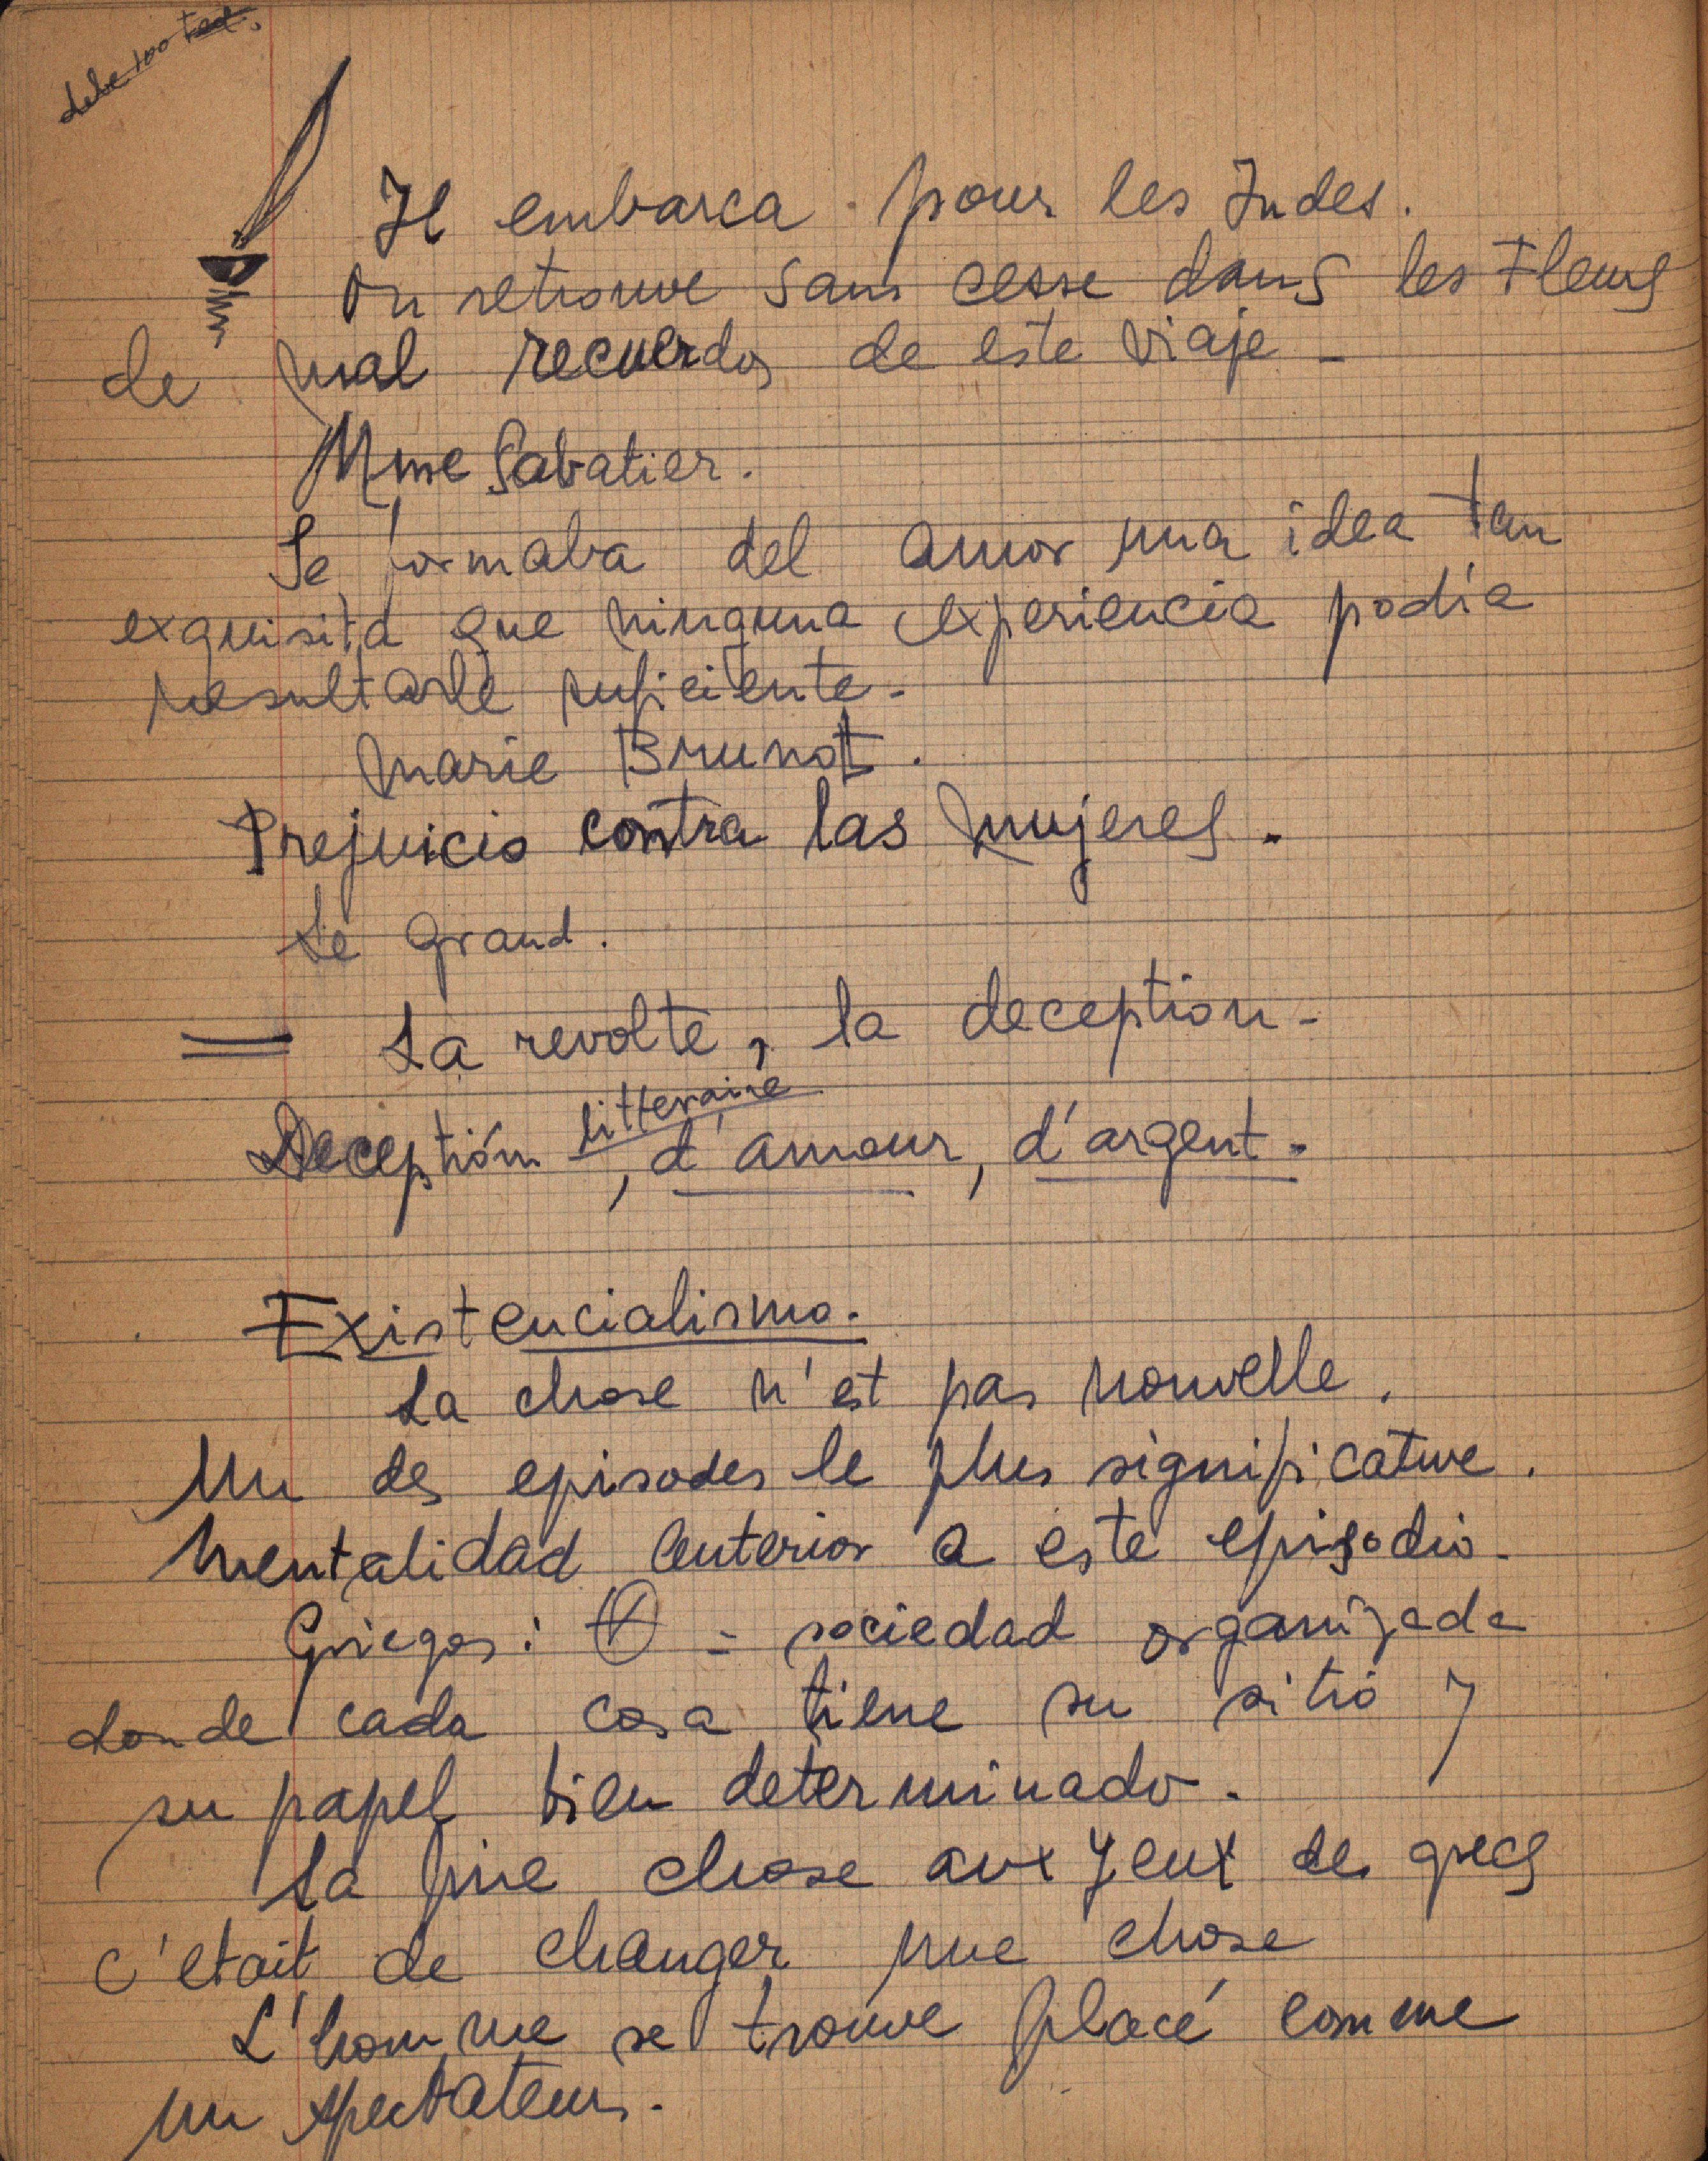 debe 100
Il embarca pour les Indes.
On retrouve sans cesse dans les Fleurs
de mal recuerdos de este viaje -
Mme Sabatier.
Se formaba del amor una idea tan
exquisita que ninguna experiencia podía
resultarle suficiente -
Marie Brunot.
Prejuicio contra las mujeres.
Le Grand.
= La revolte, la deception -
litteraire
Deceptión , d'amour, d'argent.
Existencialismo.
La chose n'est pas nouvelle.
Un des episodes le plus significative.
Mentalidad anterior a este episodio -
Griegos: = sociedad organizada
donde cada cosa tiene su sitió y
su papel bien determinado.
La pire chose aux yeux des grecs
c'etait de changer une chose
L'homme se trouve placé comme
un spectateur.